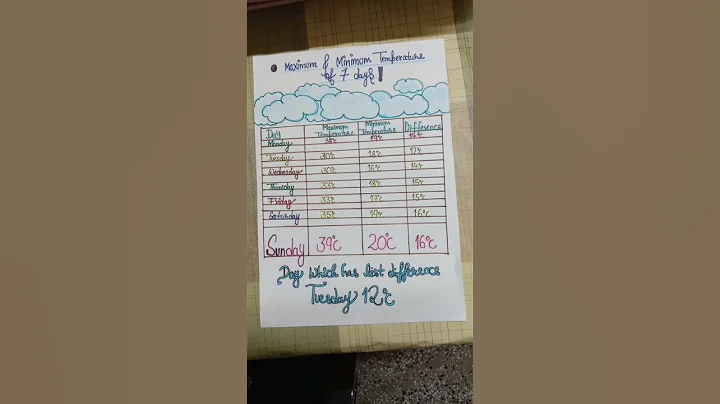 Maximum & Minimum Temperature
of 7 days!
Day Maximum Temperature Minimum Temperature Difference
Monday 19℃
Tuesday 30℃ 18℃ 12℃
Wednesday 30℃ 16℃ 14℃
Thursday 33℃ 18℃ 15℃
Friday 33℃ 17℃ 15℃
Saturday 35℃ 19℃ 16℃
Sunday 39℃ 20℃ 16℃
Day which has list difference
Tuesday 12℃